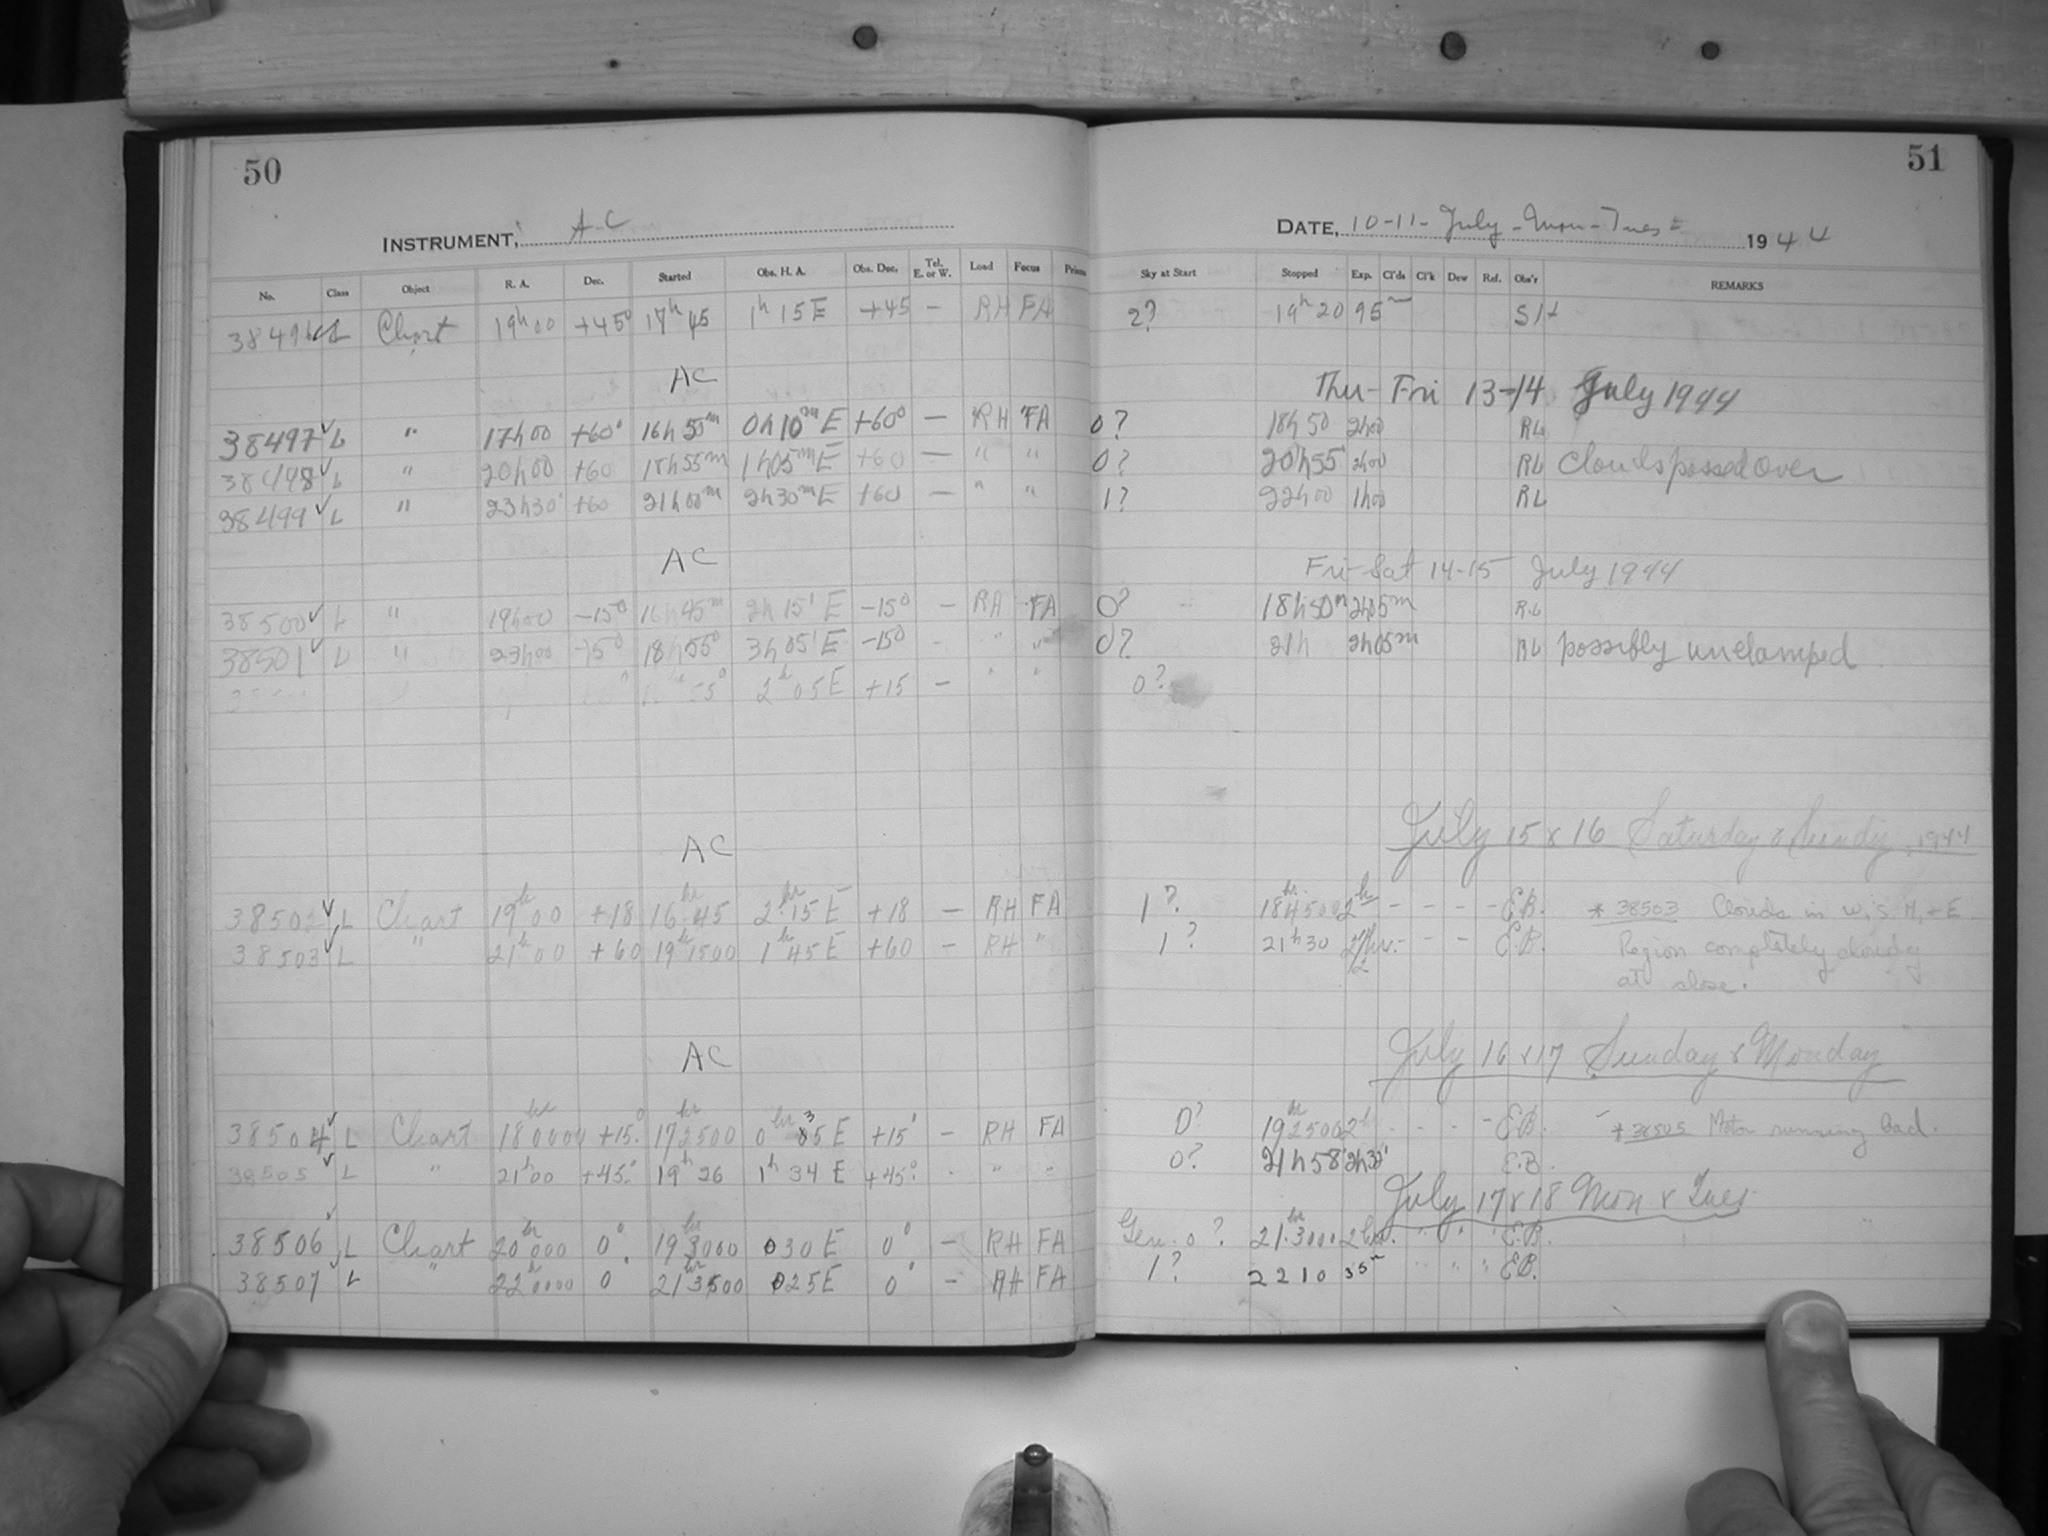 50
INSTRUMENT, A-C
No. Class Object R. A. Dec. Started Obs. H. A. Obs. Dec. Tel. E. or W. Load Focus
38496 L Chart 19h00 +45° 17h45 1h15E +45 - RH FA
AC
38497 L " 17h00 +60° 16h50m 0h10mE +60° - RH FA
38498 L " 20h00 +60 18h55m 1h05mE +60 - " "
38499 L " 23h30 +60 21h00m 2h30mE +60 - " "
AC
38500 L " 19h00 -15° 16h45m 2h15'E -15° - RH FA
38501 L " 23h00 -15° 18h55° 3h05'E -15° - " "
2h05E +15 - " "
AC
38502 L Chart 19h00 +18 16hr45 2hr15E +18 - RH FA
38503 L " 21h00 +60 19h1500 1h45E +60 - RH "
AC
38504 L Chart 18hr0000 +15° 17hr2500 0hr35E +15° - RH FA
38505 L " 21h00 +45° 19h26 1h34E +45° - " "
38506 L Chart 20hr0000 0° 19hr3000 030E 0° - RH FA
38507 L " 22h0000 0 21hr3500 025E 0° - RH FA
51
DATE, 10-11- July - Mon - Tues 1944
Sky at Start Stopped Exp. Cl'ds Cl'k Dew Ref. Obs'r REMARKS
2? 19h20 95m SH
Thu- Fri 13-14 July 1944
0? 18h50 2h00 RL
0? 20h55 2h00 RL Clouds passed over
1? 22h00 1h00 RL
Fri-Sat 14-15 July 1944
0? 18h50m 2h05m RL
0? 21h 2h05m RL possibly unclamped
0?
July 15 & 16 Saturday & Sunday, 1944
1? 18hr4500 2h - - - - E.B. * 38503 Clouds in W, S, N, + E
1? 21h30 2 1/2hrs. - - - E.B. Region completely cloudy
at close.
July 16 & 17 Sunday & Monday
0? 19hr2500 2h - - - - E.B. * 38505 Motor running bad.
0? 21h58 2h32' E.B.
July 17 & 18 Mon & Tues.
Gen. 0? 21hr3000 2hrs. " " " E.B.
1? 2210 35m " " " E.B.